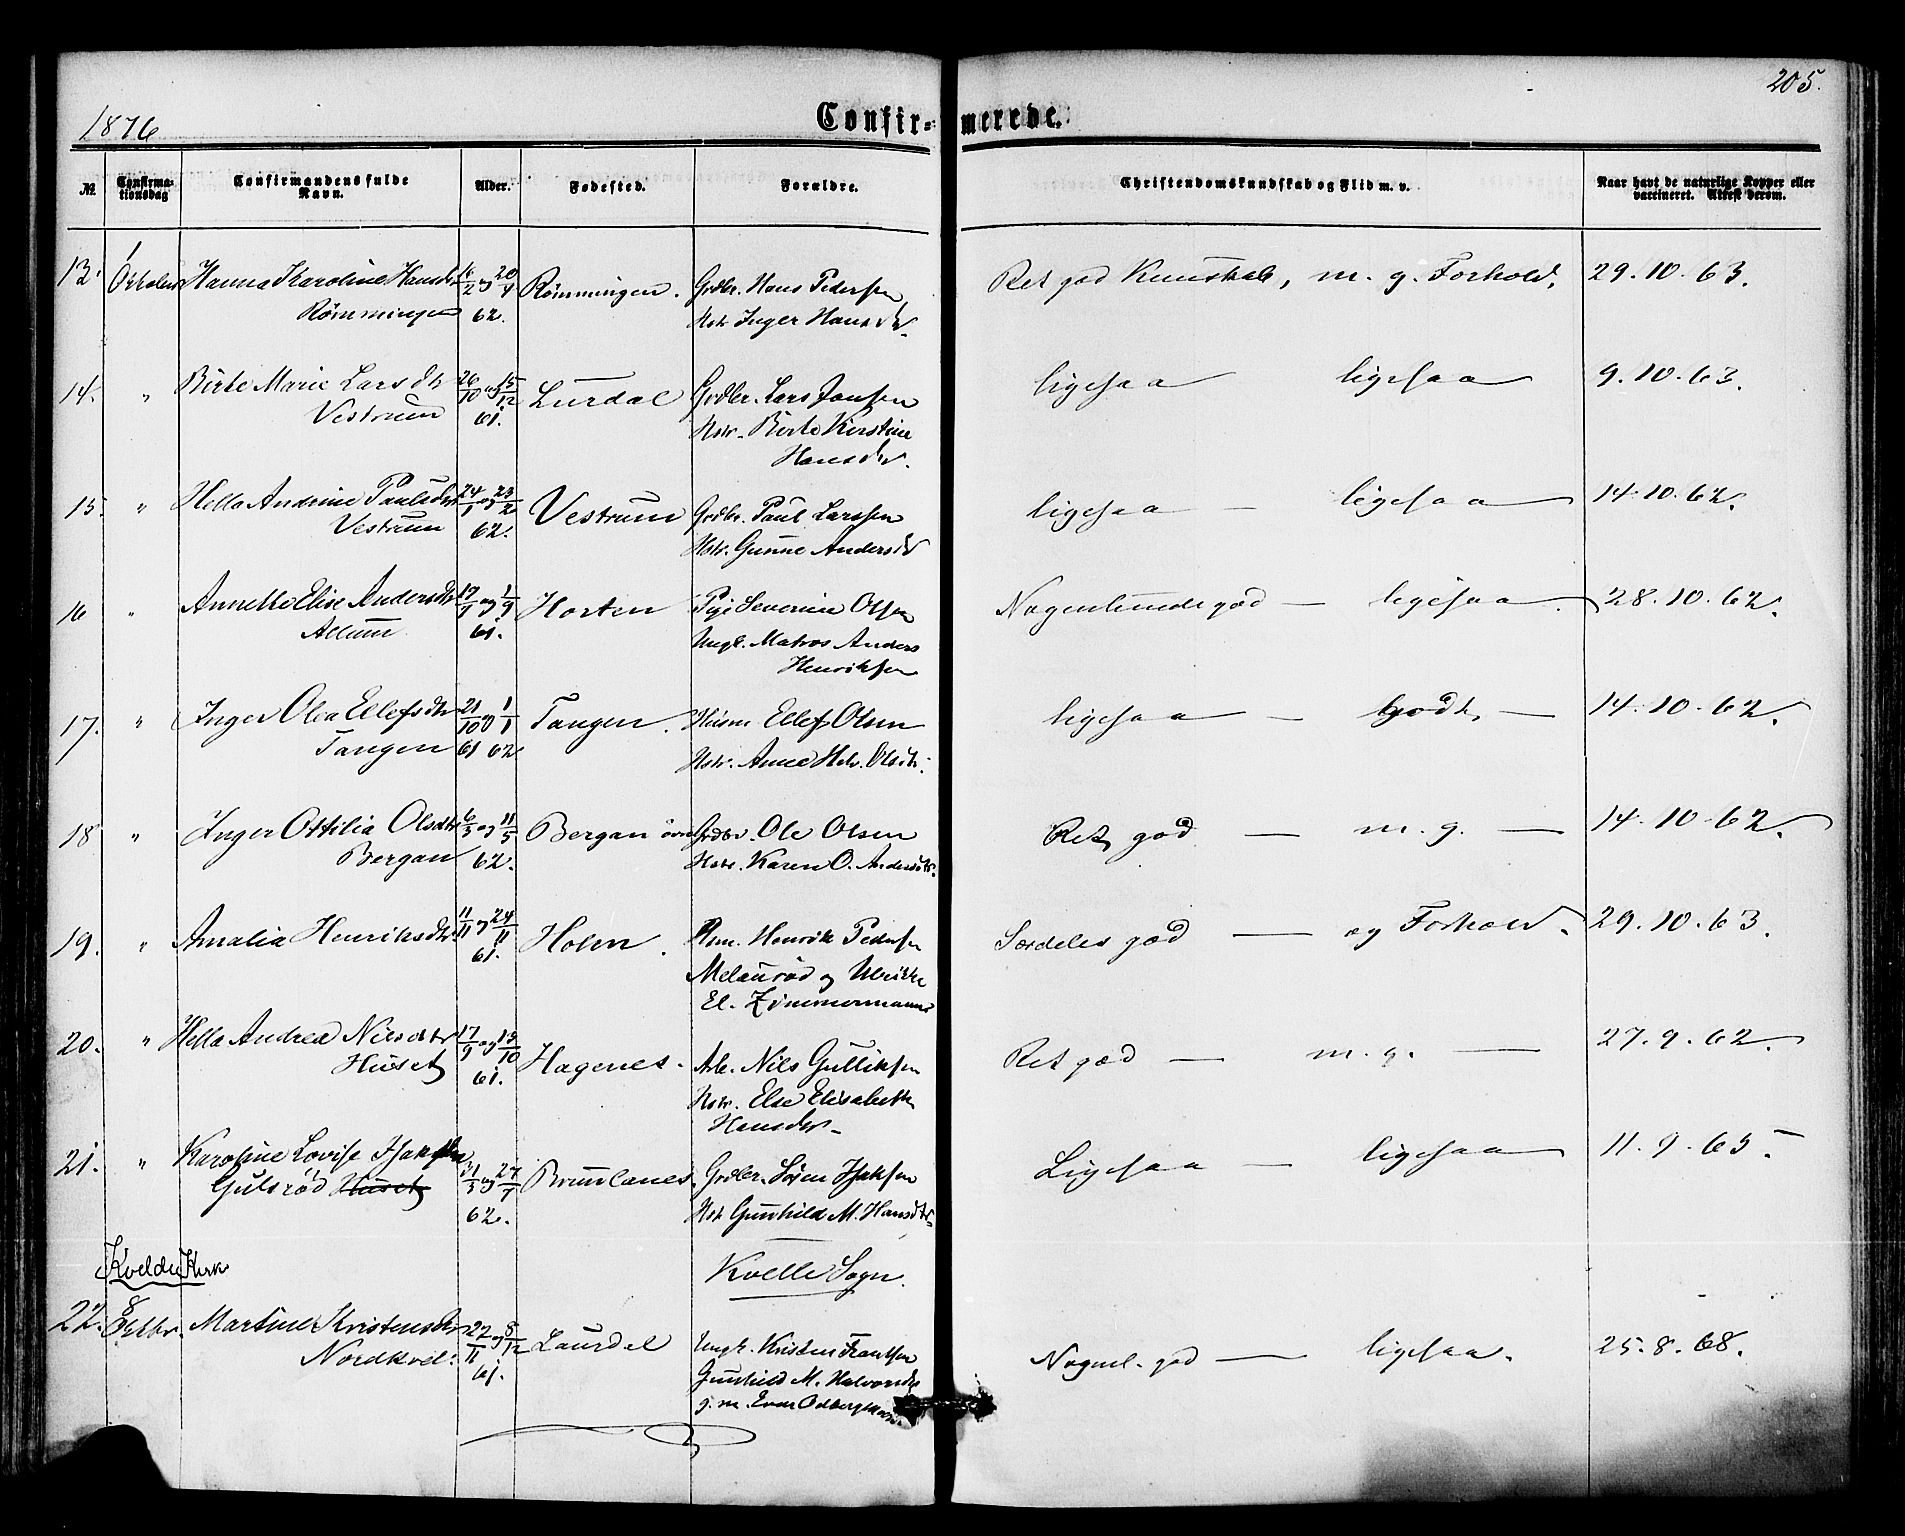 205.
1876
Confir- merede.
№
Confirma-
tionsdag
Confirmandens fulde
Navn.
Alder.
Fødested.
Forældre.
Christendomskundskab og Flid m. v.
Naar havt de naturlige Kopper eller
vaccineret. Attest derom.
13. 1 Oktober Hanna Karoline Hansdtr 16/2 og 20/4 Rømmingen. Grdbr. Hans Pedersen Ret god Kundskab, m. g. Forhold. 29.10.63.
Rømmingen 62. Hstr Inger Hansdtr.
14. " Birte Marie Larsdtr 26/10 og 15/12 Lurdal Grdbr. Lars Jansen ligesaa ligesaa 9.10.63.
Vestrum 61. Hstr. Birte Kirstine
Hansdtr.
15. " Hella Andrine Paulsdtr 24/1 og 23/2 Vestrum Grdbr. Paul Larssen ligesaa — ligesaa 14.10.62.
Vestrum 62. Hstr. Gunne Andersdtr
16 " Annette Elise Andersdtr 17/7 og 1/9 Horten Pige Severine Olsen Nogenlunde god — ligesaa. 28.10.62.
Allum 61. Ungk. Matros Anders
Henriksen
17. " Inger Olea Ellefsdtr 21/10 og 1/1 Tangen. Husm Ellef Olsen ligesaa — godt — 14.10.62.
Tangen 61 62 Hstr. Anne Hel. Olsdtr.
18 " Inger Ottilia Olsdtr 6/3 og 11/5 Bergan øvre Grdbr. Ole Olsen Ret god — m. g. — 14.10.62.
Bergan 62. Hstr. Karen O. Andersdtr.
19. " Amalia Henriksdtr 11/11 og 24/11 Holen. Hsm. Henrik Pedersen Særdeles god — og Forhold. 29.10.63.
61. Melausrød og Ulrikke
El. Zimmermanns
20. " Hella Andrea Nilsdtr 17/9 og 13/10 Hagenes. Arb. Nils Gulliksen Ret god — m. g. — 27.9.62.
Huset 61. Hstr. Else Elisabeth
Hansdtr.
21. " Karoline Lovise Isaksdtr 31/5 og 27/7 Brunlanes. Grdbr. Søren Isaksen Ligesaa — ligesaa 11.9.65.
Gulsrød Huset 62. Hstr Gunhild M. Hansdtr.
Kvelde Kirk
Kvelle Sogn.
22. 8 Oktbr. Martine Kristensdtr 22/11 og 8/12 Laurdel Ungk. Kristen Frantsen Nogenl. god — ligesaa. 25.8.68.
Nordkvel. 61. Gunhild M. Halvorsdtr
g. m. Evar Odberg